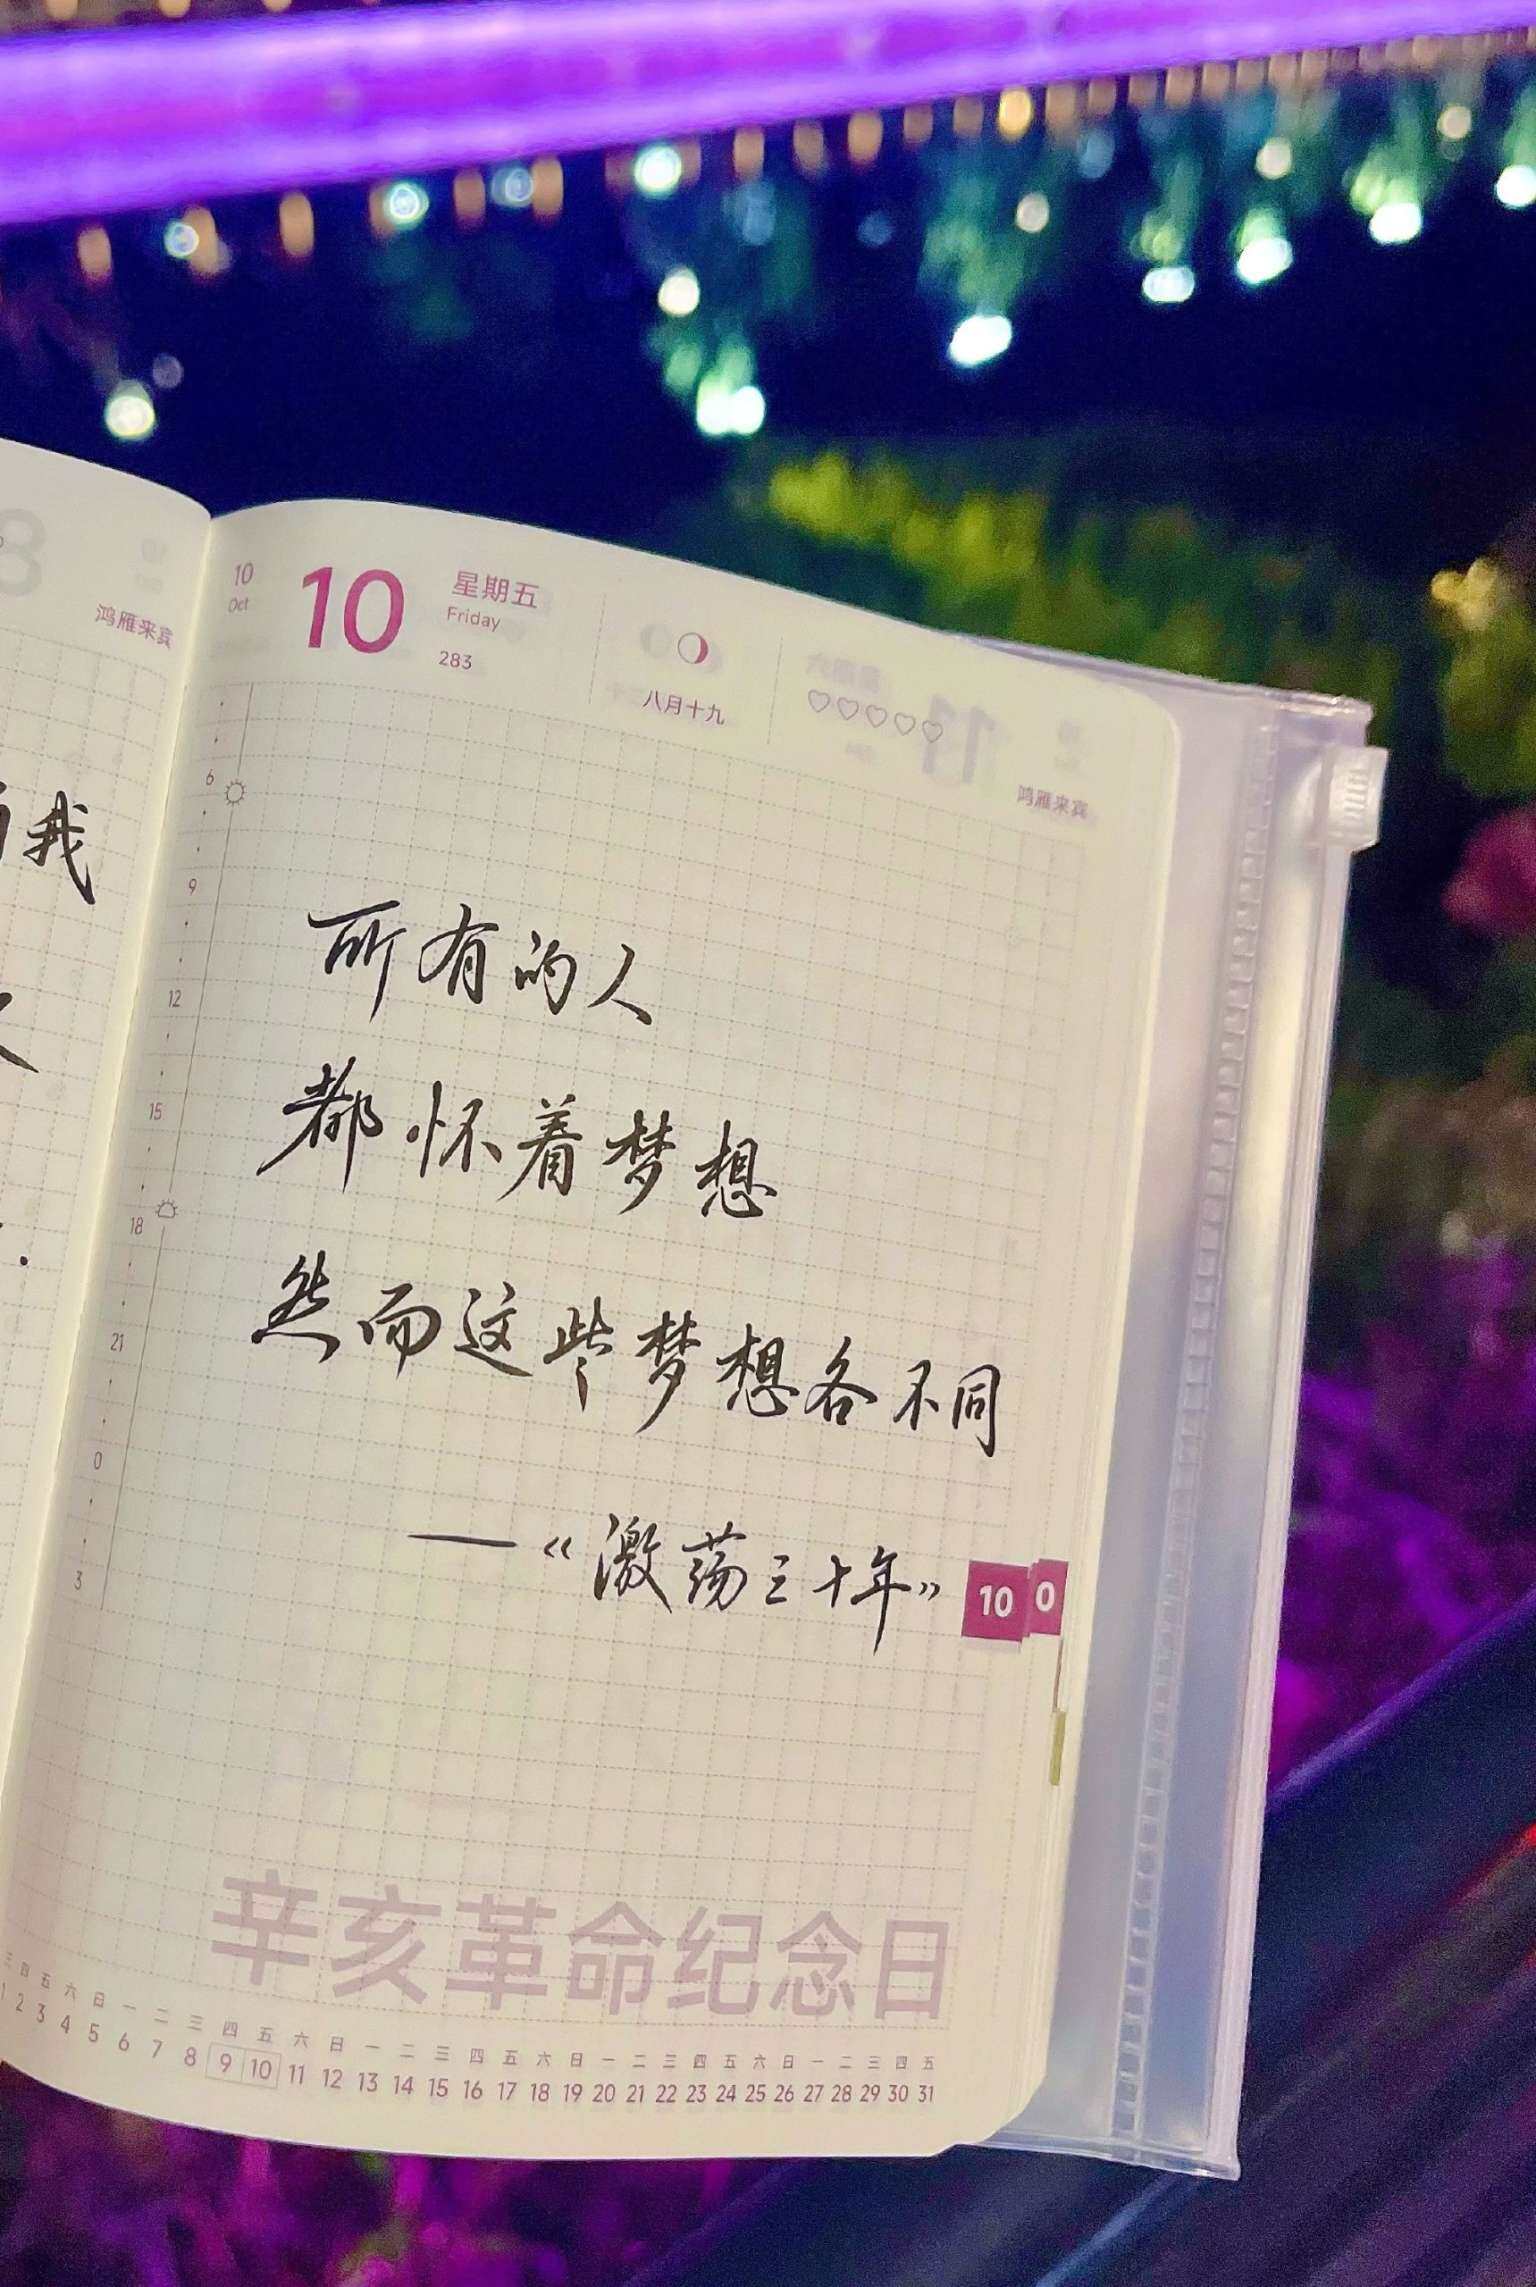 8
鸿雁来宾
我
10
Oct
10
星期五
Friday
283
八月十九
鸿雁来宾
6
9
12
15
18
21
0
3
所有的人
都怀着梦想
然而这些梦想各不同
—《激荡三十年》
10 0
辛亥革命纪念日
三 四 五 六 日 一 二 三 四 五 六 日 一 二 三 四 五 六 日 一 二 三 四 五 六 日 一 二 三 四 五
1 2 3 4 5 6 7 8 9 10 11 12 13 14 15 16 17 18 19 20 21 22 23 24 25 26 27 28 29 30 31